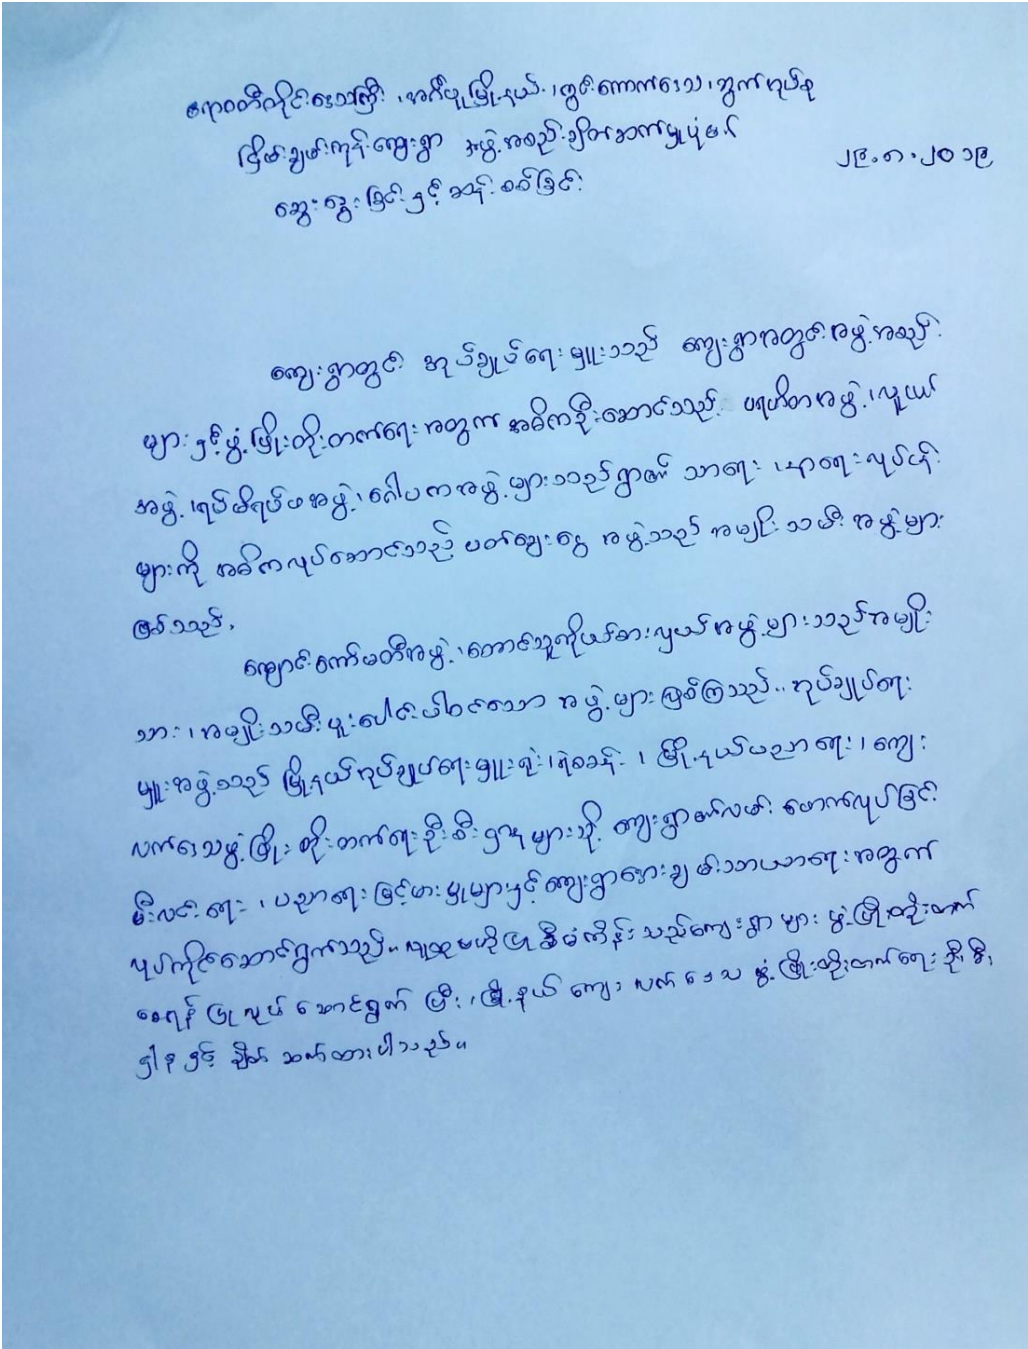 ဧရာဝတီတိုင်းဒေသကြီး ၊ အင်္ဂပူမြို့နယ် ၊ ကွင်းကောက်ဒေသ ၊ ကွက်အုပ်စု
ငြိမ်းချမ်းကုန်းကျေးရွာ အဖွဲ့အစည်းချိတ်ဆက်မှုပုံစံ
၂၉.၁.၂၀၁၉
ဆွေးနွေးခြင်းနှင့် ဆန်းစစ်ခြင်း
ကျေးရွာတွင် အုပ်ချုပ်ရေးမှူးသည် ကျေးရွာအတွင်းအဖွဲ့အစည်း
များနှင့်ဖွံ့ဖြိုးတိုးတက်ရေးအတွက် အဓိကဦးဆောင်သည့် ပရဟိတအဖွဲ့ ၊ လူငယ်
အဖွဲ့ ၊ ရပ်မိရပ်ဖအဖွဲ့ ၊ ဂေါပကအဖွဲ့များသည်ရွာ၏ သာရေး ၊ နာရေးလုပ်ငန်း
များကို အဓိကလုပ်ဆောင်သည့် ပတ်ချေးငွေ အဖွဲ့သည် အမျိုးသမီး အဖွဲ့များ
ဖြစ်သည် ၊
ကျောင်းကော်မတီအဖွဲ့ ၊ တောင်သူကိုယ်စားလှယ်အဖွဲ့များသည်အမျိုး
သား ၊ အမျိုးသမီးပူးပေါင်းပါဝင်သော အဖွဲ့များဖြစ်ကြသည် ။ အုပ်ချုပ်ရေး
မှူးအဖွဲ့သည် မြို့နယ်အုပ်ချုပ်ရေးမှူးရုံး ၊ ရဲစခန်း ၊ မြို့နယ်ပညာရေး ၊ ကျေး
လက်ဒေသဖွံ့ဖြိုးတိုးတက်ရေးဦးစီးဌာနများသို့ ကျေးရွာ၏လမ်း ဖောက်လုပ်ခြင်း
မီးလင်းရေး ၊ ပညာရေးမြင့်မားမှုများနှင့်ကျေးရွာအေးချမ်းသာယာရေးအတွက်
လုပ်ကိုင်ဆောင်ရွက်သည် ။ လူထုဗဟိုပြုစီမံကိန်းသည်ကျေးရွာများ ဖွံ့ဖြိုးတိုးတက်
စေရန် ပြုလုပ် ဆောင်ရွက် ပြီး ၊ မြို့နယ် ကျေး လက် ဒေသ ဖွံ့ဖြိုးတိုးတက်ရေး ဦးစီး
ဌာန နှင့် ချိတ် ဆက်ထားပါသည် ။